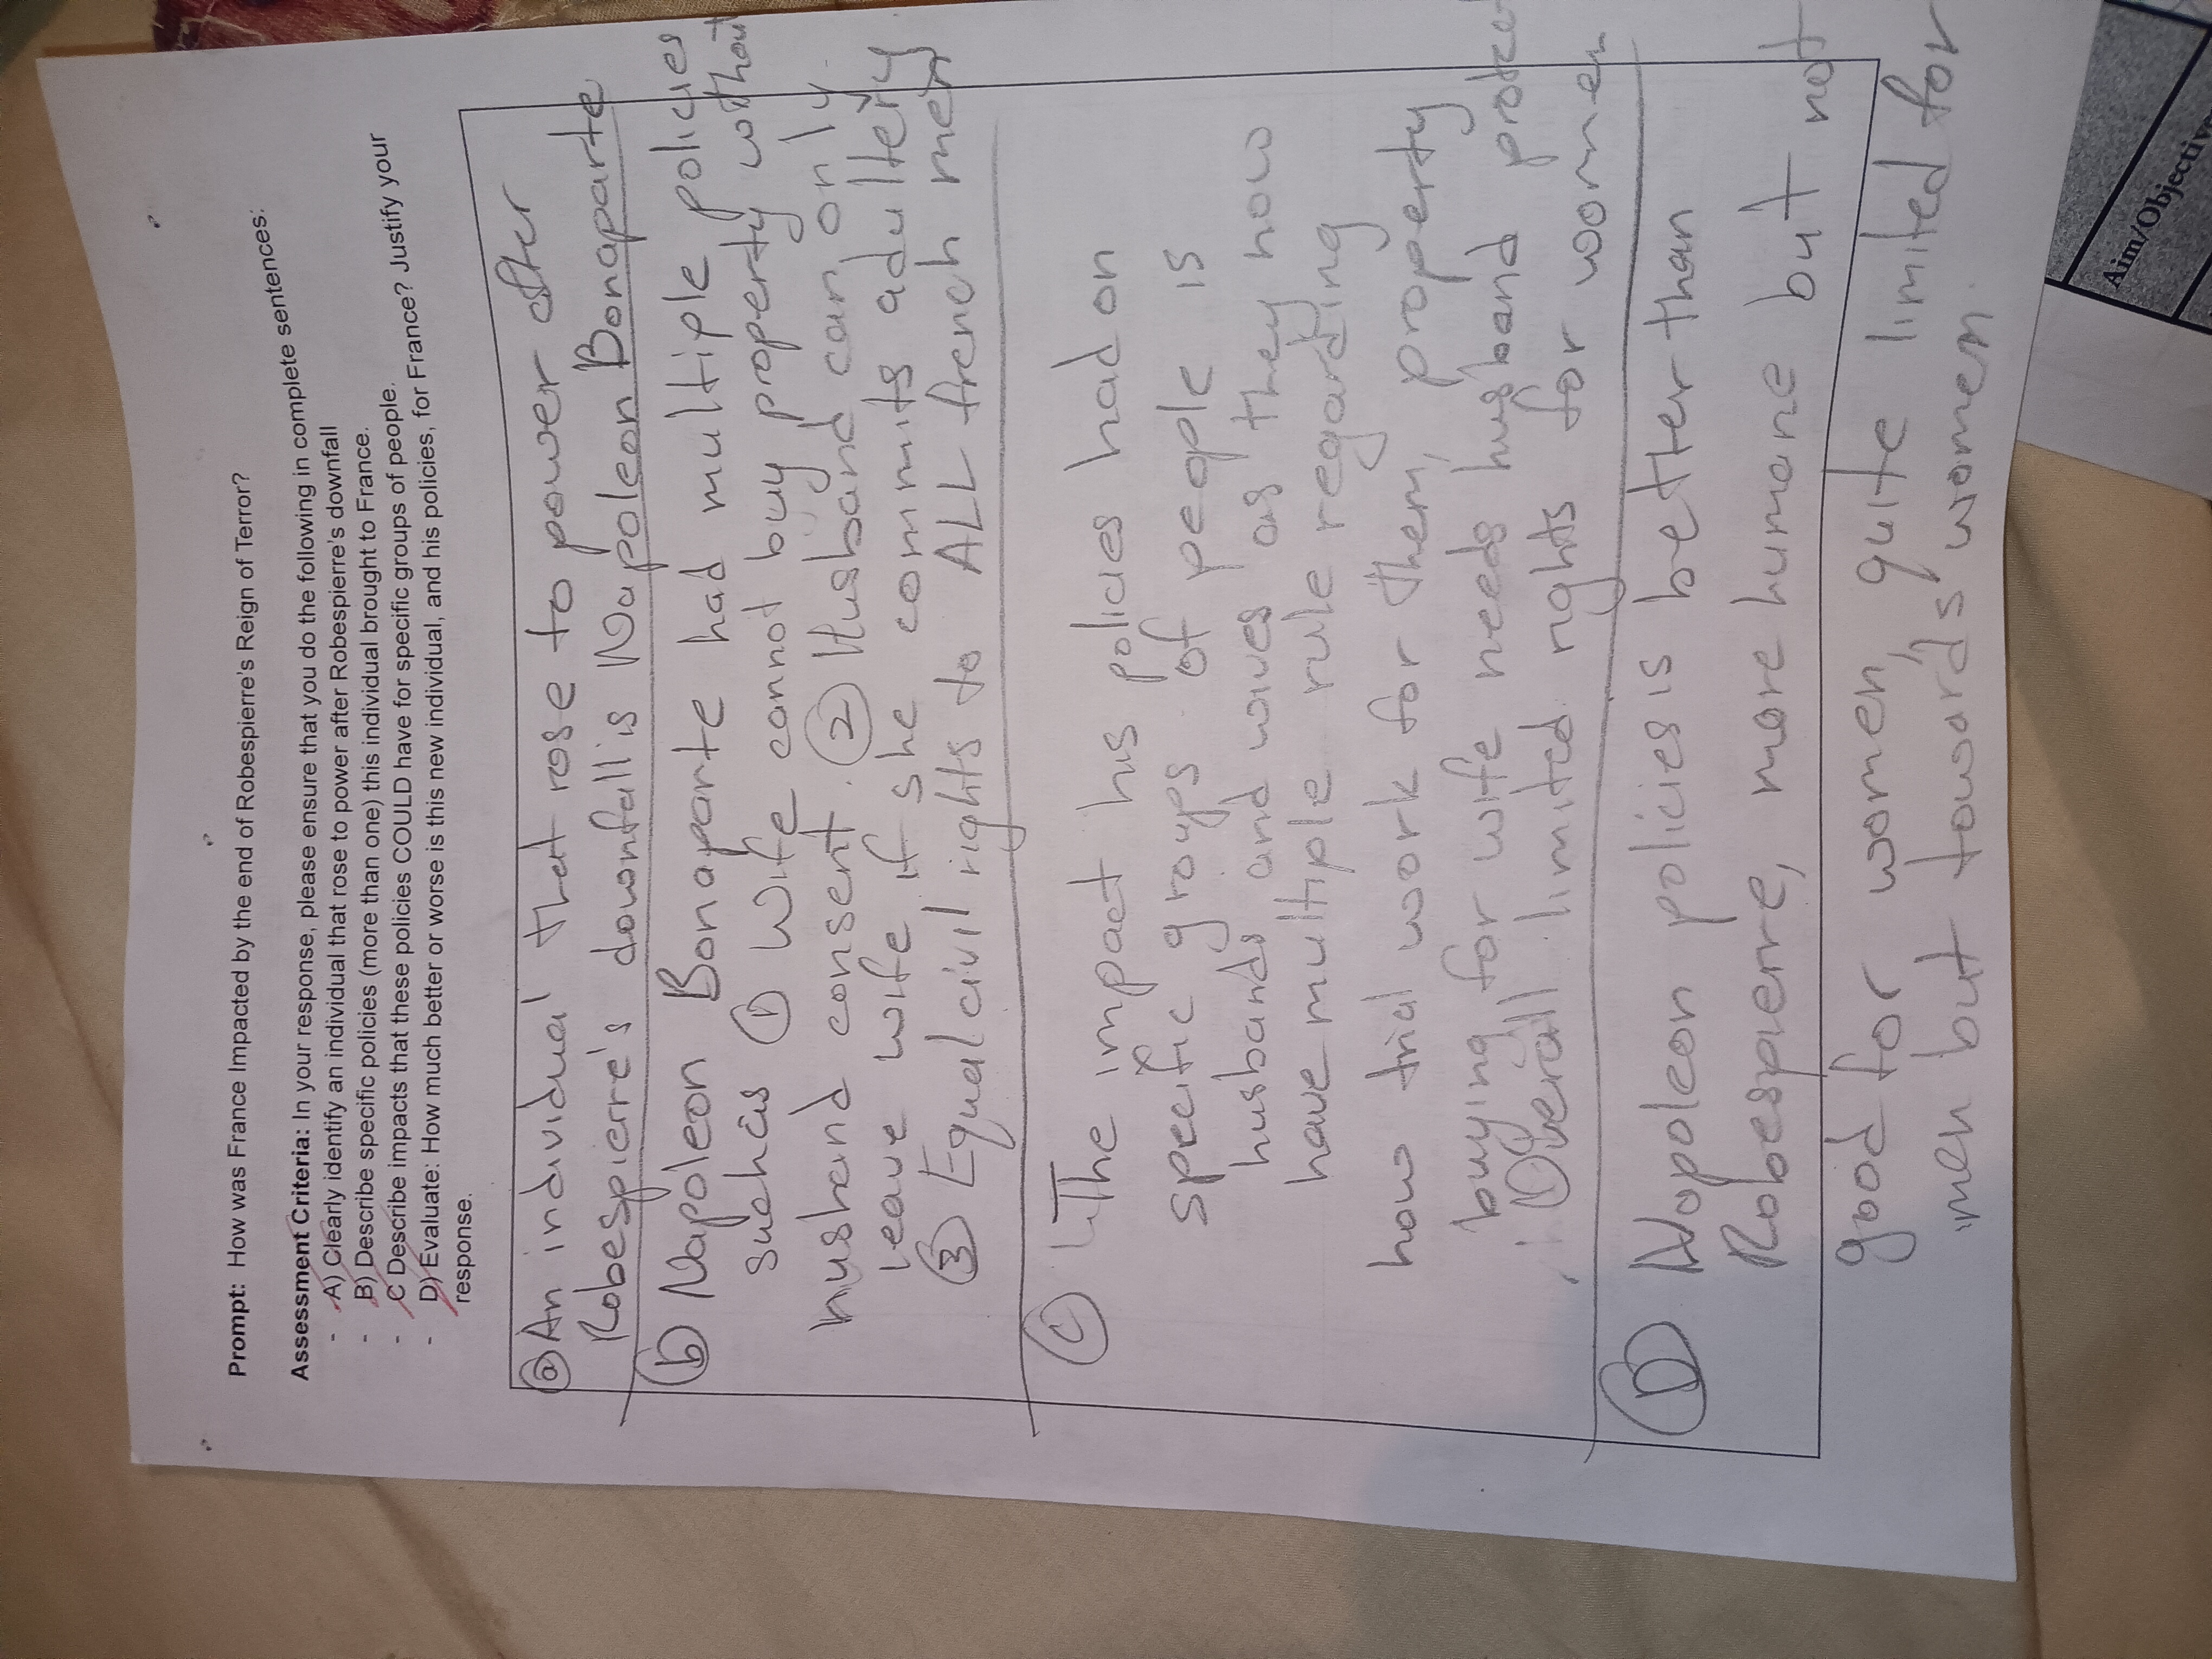 Prompt: How was France Impacted by the end of Robespierre's Reign of Terror?
Assessment Criteria: In your response, please ensure that you do the following in complete sentences:
- A) Clearly identify an individual that rose to power after Robespierre's downfall
- B) Describe specific policies (more than one) this individual brought to France.
- C Describe impacts that these policies COULD have for specific groups of people.
- D) Evaluate: How much better or worse is this new individual, and his policies, for France? Justify your
response.
a An individual that rose to power after
Robespierre's downfall is Napoleon Bonaparte
b Napoleon Bonaparte had multiple policies
such as 1 wife cannot buy property without
husband consent. 2 Husband can only
leave wife if she commits adultery
3 Equal civil rights to ALL french men
C The impact his policies had on
specific groups of people is
husbands and wives as they now
have multiple rule regarding
how trial work for them, property
buying for wife needs husband
Overall limited rights for women
D Napoleon policies is better than
Robespierre, more humane but not
good for women, quite limited for
men but towards women.
Aim/Objectiv